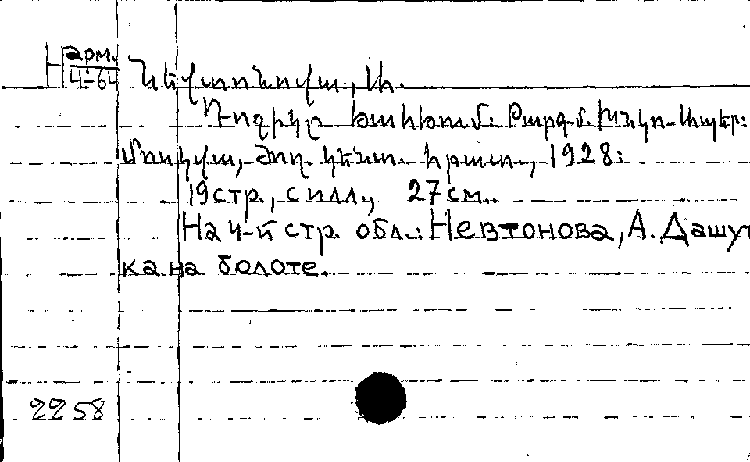 Н арм. 4-64
Նեվտոնովա, Ա.
Դոզիկը ճահճում: Թարգմ. Խնկո-Ապեր:
Մոսկվա, Ժող. կենտ. հրատ., 1928:
19 стр., с илл., 27 см.
На 4-й стр. обл.: Невтонова, А. Дашут
ка на болоте.
2258